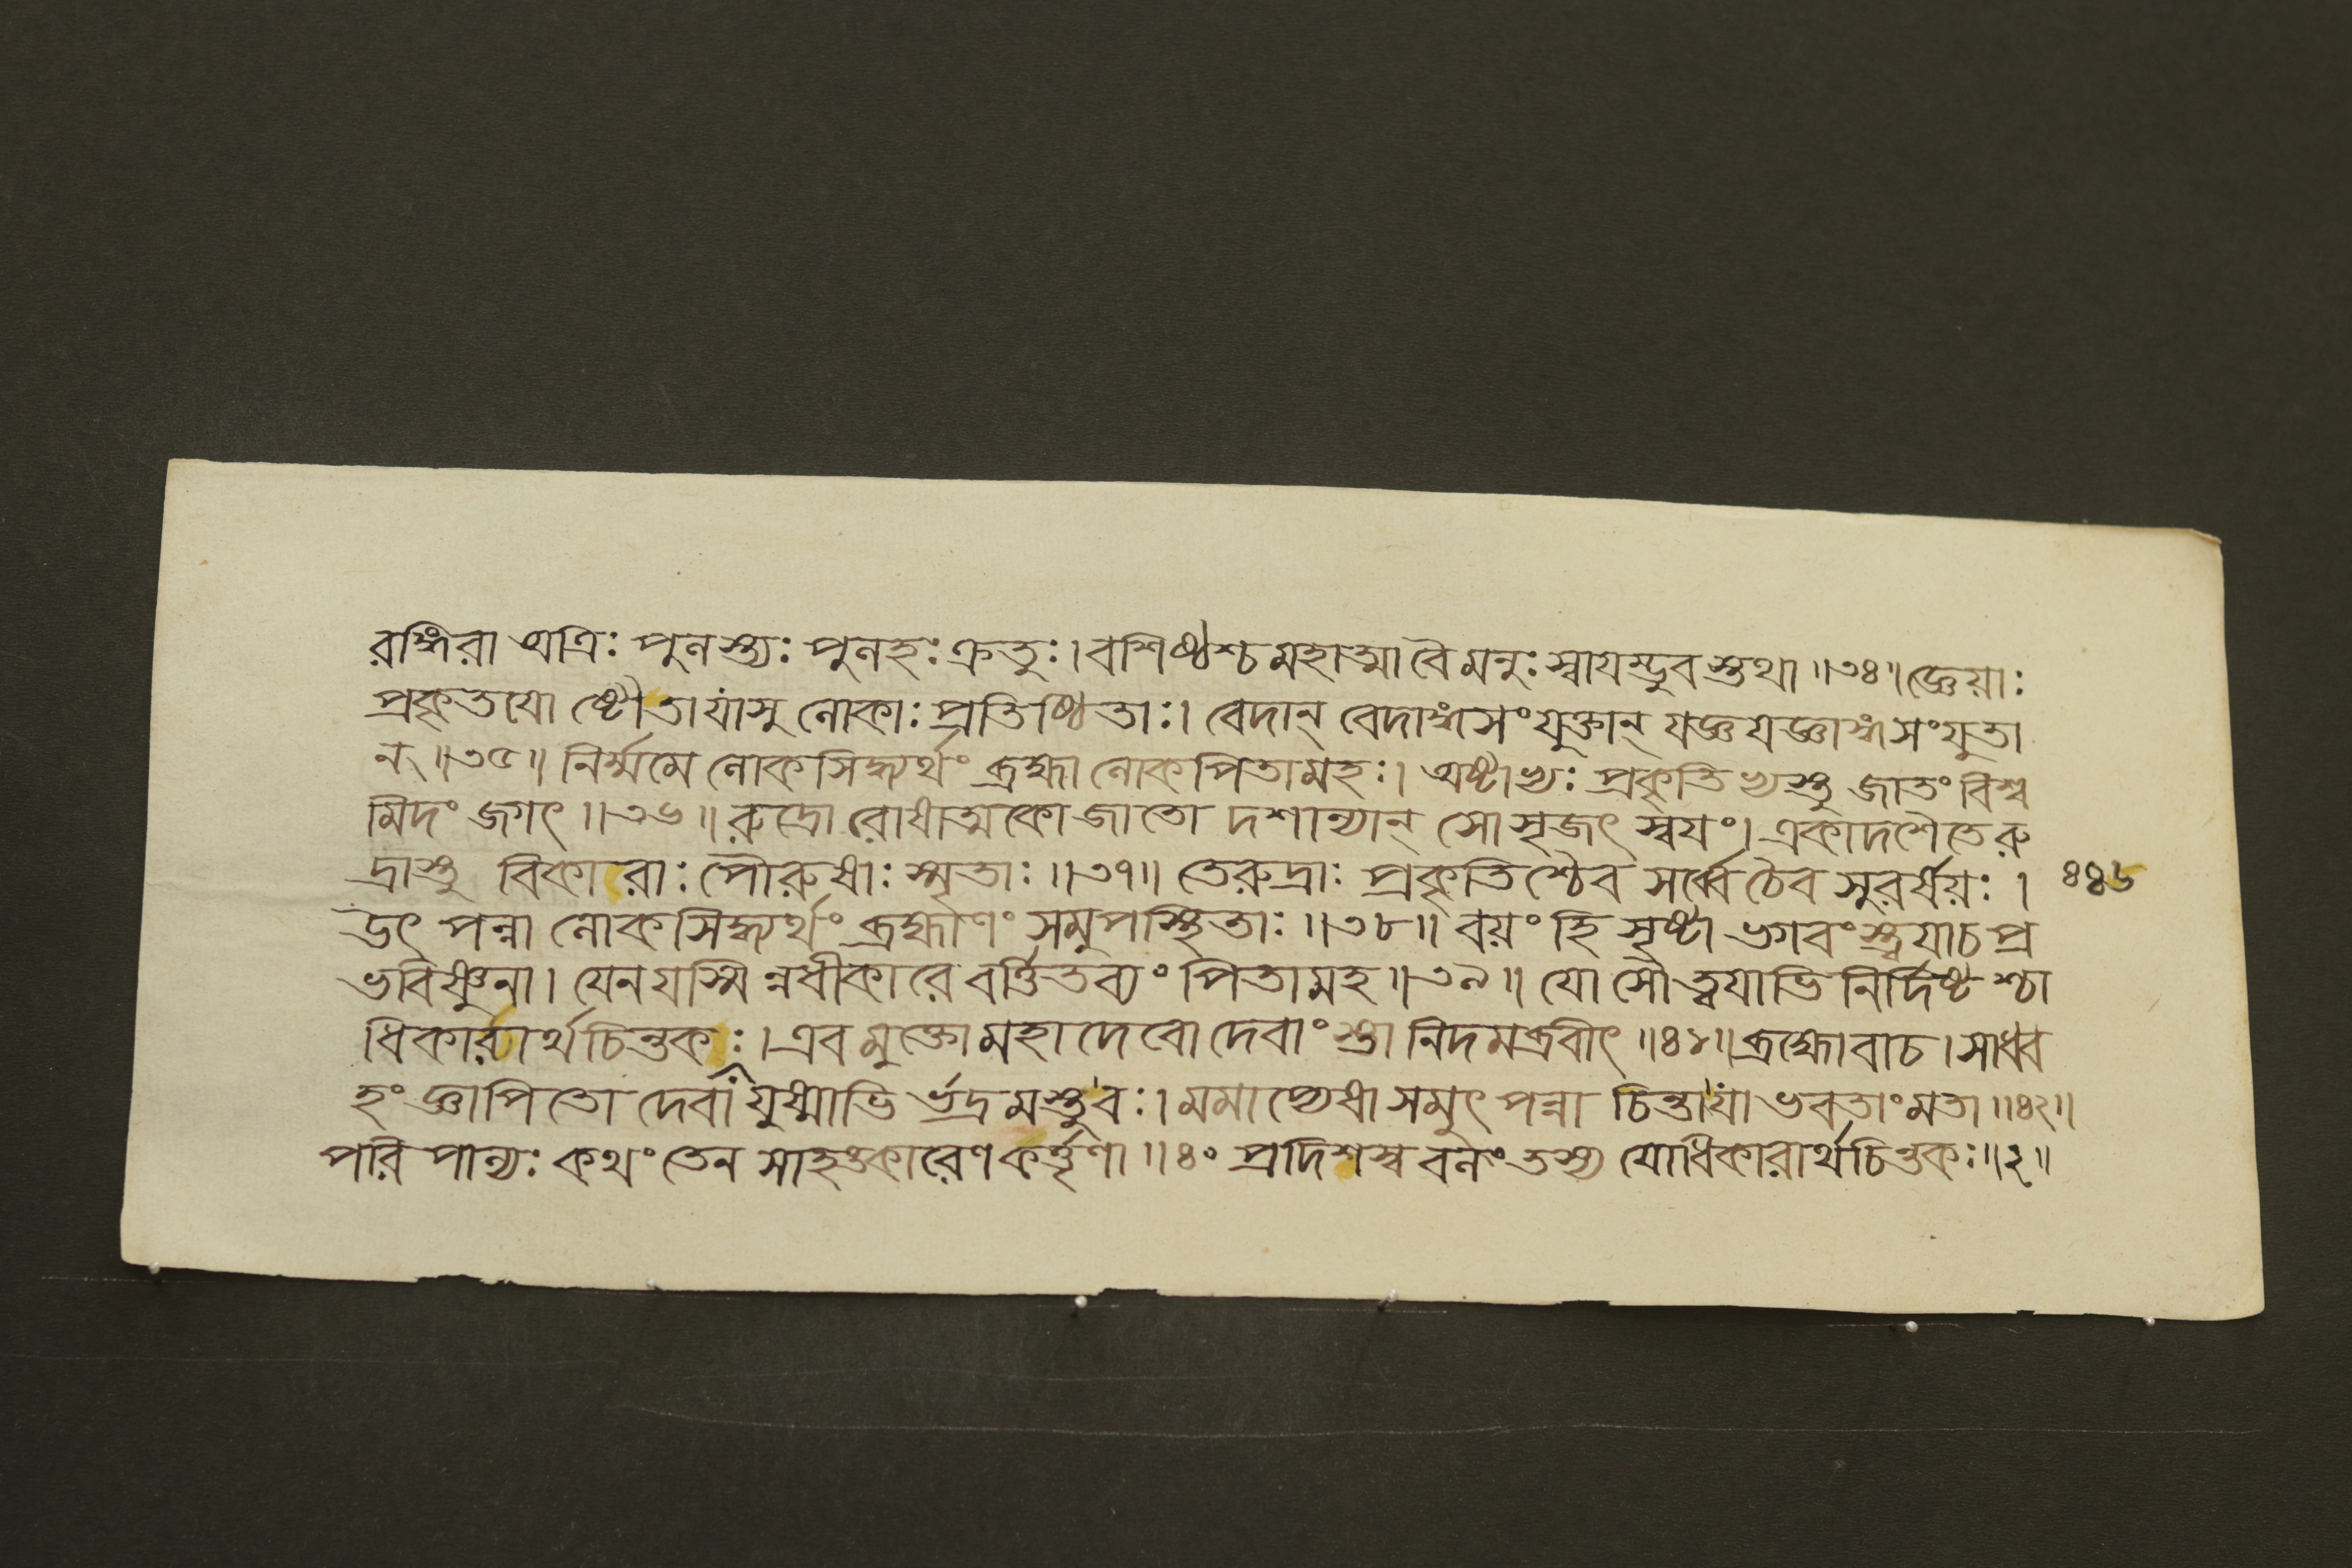 রঙ্গিরা অত্রিঃ পুলস্ত্যঃ পুলহঃ ক্রতুঃ। বশিষ্ঠশ্চ মহাত্মা বৈ মনুঃ স্বাযম্ভুবস্তথা ॥৩৪॥ জ্ঞেয়াঃ
প্রকৃতযো ষ্টৌতা যাসু লোকাঃ প্রতিষ্ঠিতাঃ। বেদান্ বেদাঙ্গসংযুক্তান্ যজ্ঞযজ্ঞাঙ্গসংযুতা
ন্ ॥৩৫॥ নির্ম্মমে লোকসিদ্ধ্যর্থং ব্রহ্মা লোকপিতামহঃ। অষ্টাভ্যঃ প্রকৃতিভ্যস্তু জাতং বিশ্ব
মিদং জগৎ ॥৩৬॥ রুদ্রো রোষাত্মকো জাতো দশান্যান্ সোসৃজৎ স্বযং। একাদশৈতে রু
দ্রাস্তু বিকারাঃ পৌরুষাঃ স্মৃতাঃ ॥৩৭॥ তে রুদ্রাঃ প্রকৃতিশ্চৈব সর্ব্বে চৈব সুরর্ষয়ঃ। ৪৪৬
উৎপন্না লোকসিদ্ধ্যর্থং ব্রহ্মাণং সমুপস্থিতাঃ ॥৩৮॥ বয়ং হি সৃষ্টা ভগবংস্ত্বযা চ প্র
ভবিষ্ণুনা। যেন যস্মিন্নধীকারে বর্ত্তিতব্যং পিতামহ ॥৩৯॥ যোসৌ ত্বযাভিনির্দিষ্টশ্চা
ধিকারার্থচিন্তকঃ। এবমুক্তো মহাদেবো দেবাংস্তানিদমব্রবীৎ ॥৪১॥ ব্রহ্মোবাচ। সাধ্ব
হং জ্ঞাপিতো দেবা যুষ্মাভির্ভদ্রমস্তু বঃ। মমাপ্যেষা সমুৎপন্না চিন্তা যা ভবতাং মতা ॥৪২॥
পরিপাল্যঃ কথং তেন সাহঙ্কারেণ কর্ত্তৃণা ॥৪০ প্রদিশস্ব বলং তস্য যোধিকারার্থচিন্তকঃ ॥২॥